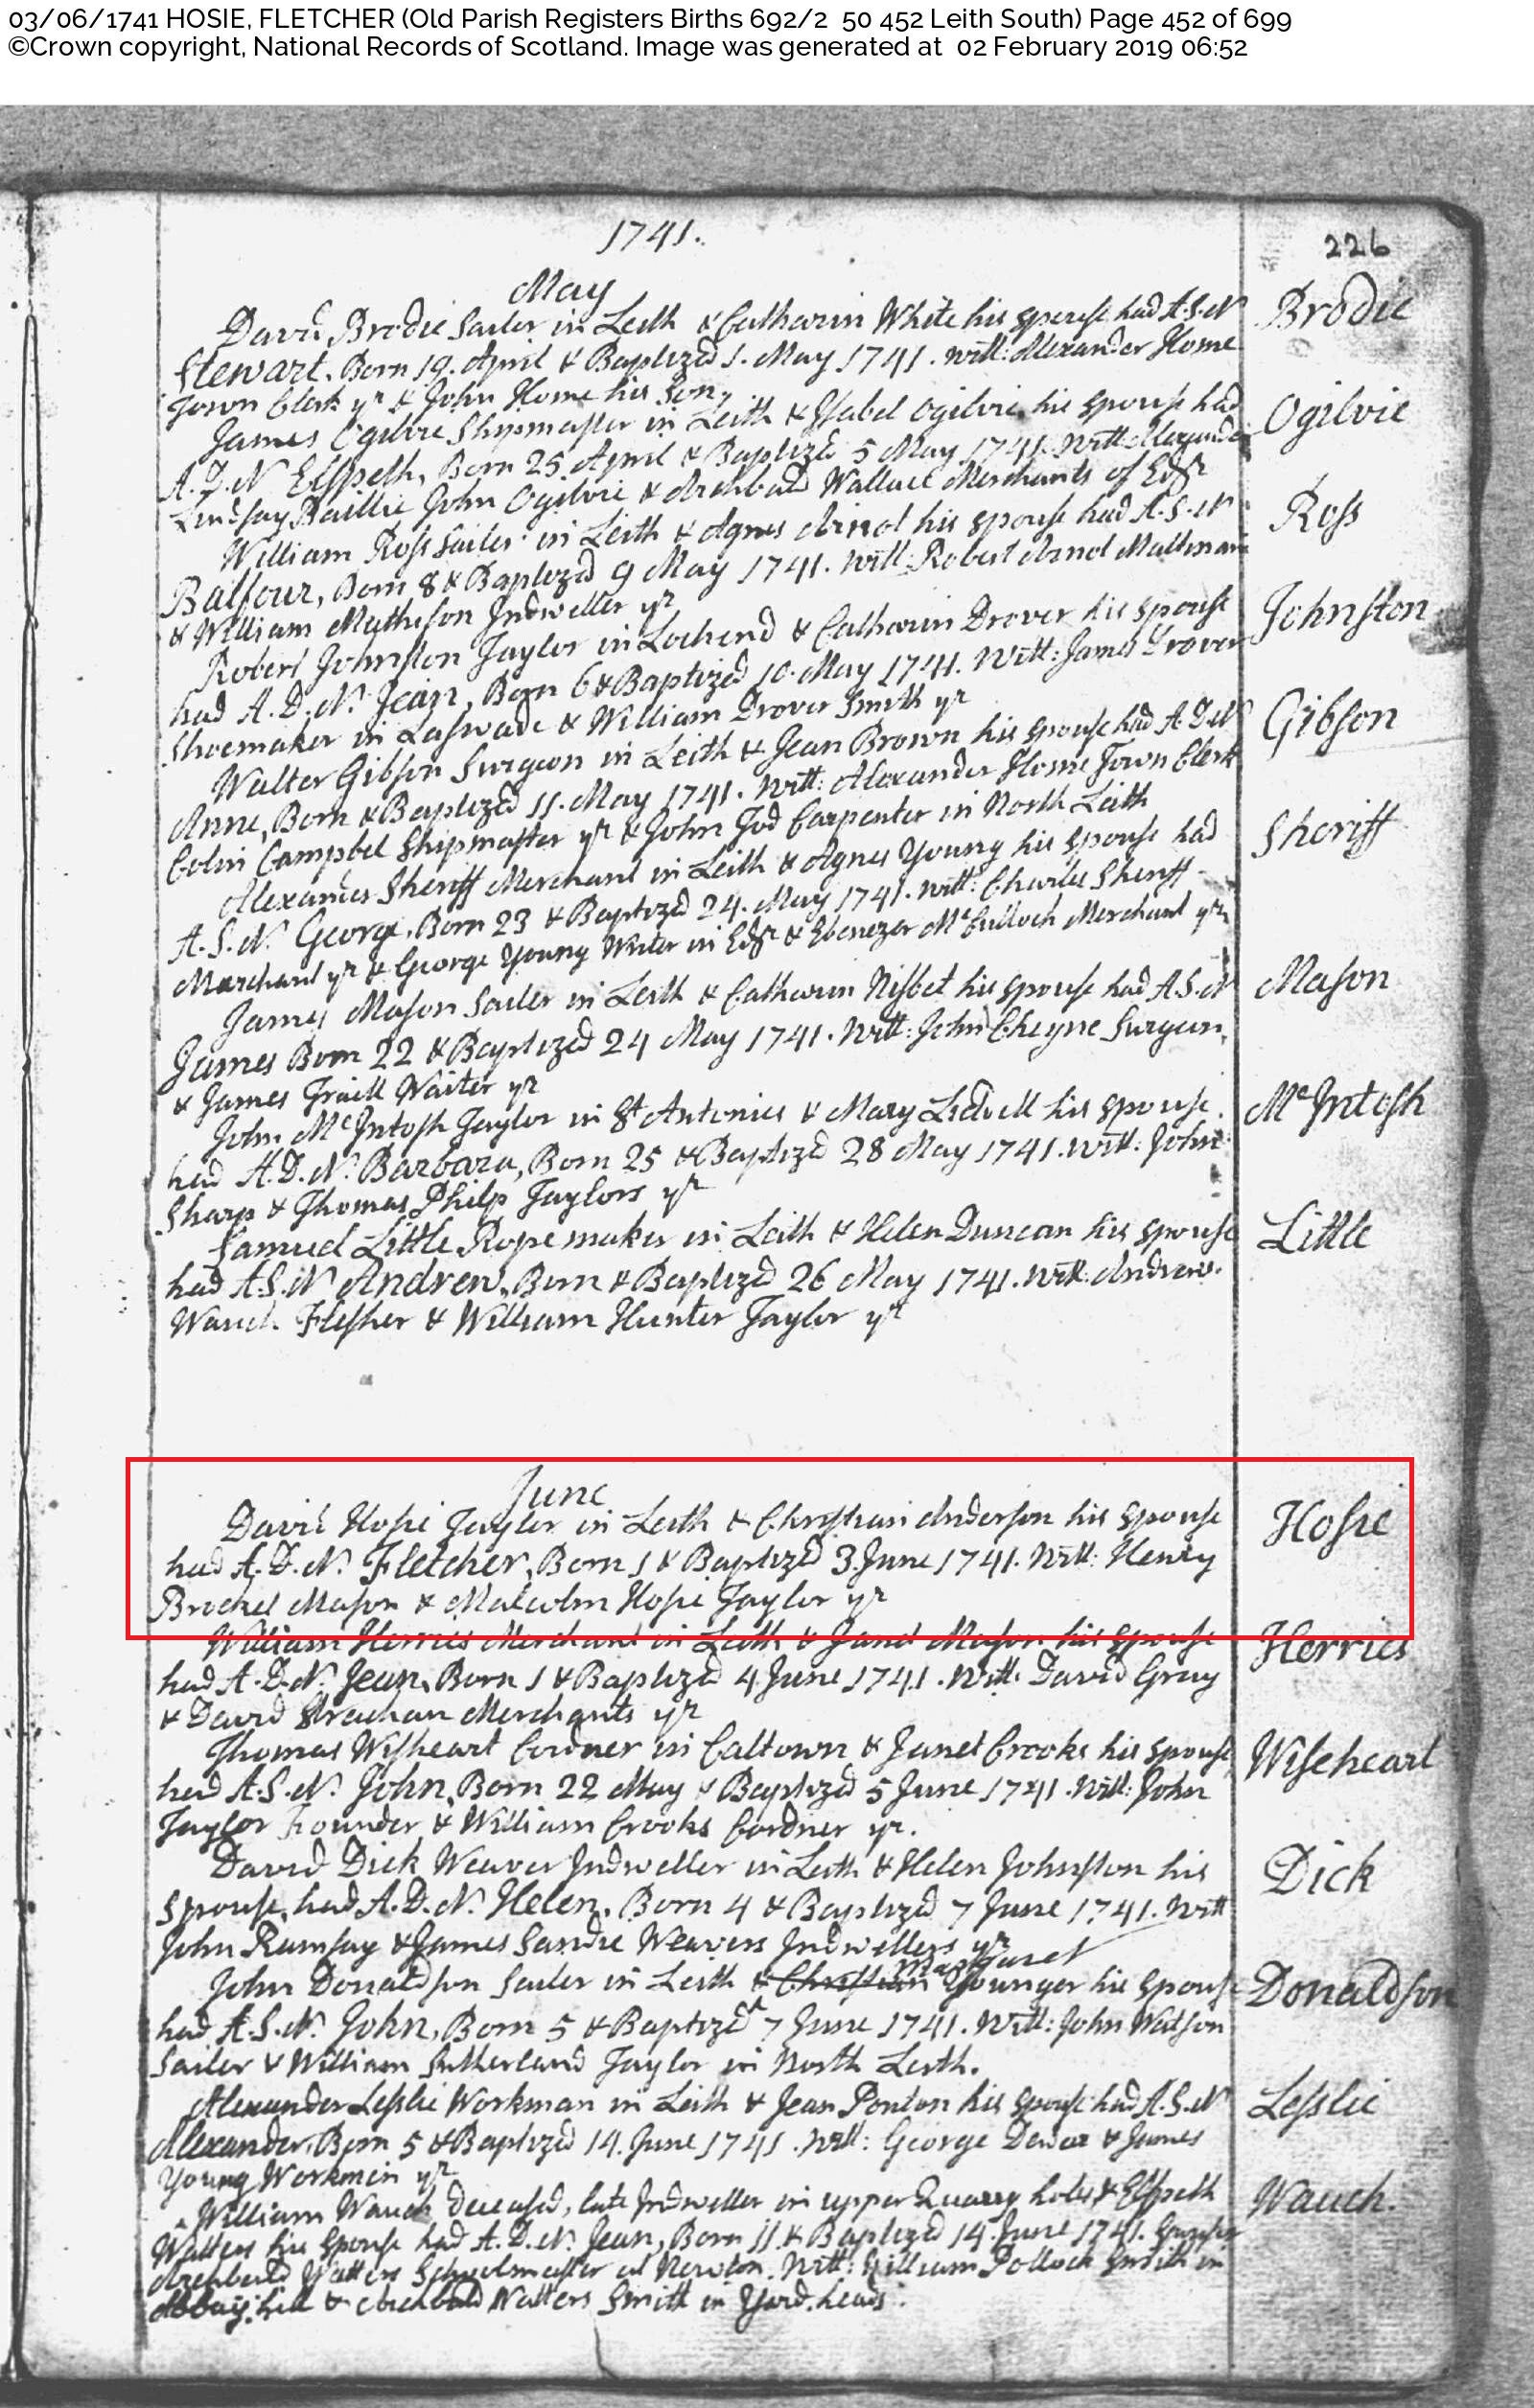 03/06/1741 HOSIE, FLETCHER (Old Parish Registers Births 692/2 50 452 Leith South) Page 452 of 699
©Crown copyright, National Records of Scotland. Image was generated at 02 February 2019 06:52
1741.
226
May
David Brodie Sailer in Leith & Catharin White his spouse had A.S.N
Brodie
Stewart, Born 19. April & Baptized 1. May 1741. Witt: Alexander Home
Town Clerk yr & John Home his Son,
James Ogilvie Shipmaster in Leith & Issabel Ogilvie his spouse had
Ogilvie
A.D.N Elspeth, Born 25 April & Baptized 5 May 1741. Witt Alexander
Lindsay Baillie John Ogilvie & Archbald Wallace Merchants of Edr
William Ross Sailer in Leith & Agnes Arnot his spouse had A.S.N
Ross
Balfour, Born 8 & Baptized 9 May 1741. Witt: Robert Arnot Maltman
& William Matheson Indweller yr
Robert Johnston Taylor in Lochend & Catharin Drover his spouse
Johnston
had A.D.N. Jean, Born 6 & Baptized 10. May 1741. Witt: James Drover
Shoemaker in Laswade & William Drover Smith yr
Walter Gibson Surgeon in Leith & Jean Brown his spouse had A.D.N
Gibson
Anne, Born & Baptized 11. May 1741. Witt: Alexander Home Town Clerk
Colin Campbel Shipmaster yr & John Tod Carpenter in North Leith
Alexander Sheriff Merchant in Leith & Agnes Young his spouse had
Sheriff
A.S.N. George, Born 23 & Baptized 24. May 1741. Witt: Charles Sheriff
Marchant yr & George Young Writer in Edr & Ebenezer McCulloch Merchant yr
James Mason Sailer in Leith & Catharin Nisbet his spouse had A.S.N
Mason
James Born 22 & Baptized 24 May 1741. Witt: John Cheyne Surgeon,
& James Traill Waiter yr
John McIntosh Taylor in St Antonies & Mary Lidvell his spouse.
McIntosh
had A.D.N. Barbara, Born 25 & Baptized 28 May 1741. Witt: John
Sharp & Thomas Philp Taylors yr
Samuel Little Ropemaker in Leith & Helen Duncan his spouse
Little
had A.S.N Andrew, Born & Baptized 26 May 1741. Witt. Andrew
Wauch Flesher & William Hunter Taylor yr
June
David Hosie Taylor in Leith & Christian Anderson his spouse
Hosie
had A.D.N. Fletcher, Born 1 & Baptized 3 June 1741. Witt: Henry
Brockel Mason & Malcolm Hosie Taylor yr
William Herries Merchant in Leith & Janet Mason his spouse
Herries
had A.D.N. Jean, Born 1 & Baptized 4 June 1741. Witt. David Gray
& David Strachan Merchants yr
Thomas Wisheart Cordner in Caltown & Janet Crooks his spouse
Wiseheart
had A.S.N. John, Born 22 May & Baptized 5 June 1741. Witt: John
Taylor Founder & William Crooks Cordner yr.
David Dick Weaver Indweller in Leith & Helen Johnston his
Dick
spouse, had A.D.N. Helen, Born 4 & Baptized 7 June 1741. Witt
John Ramsay & James Sandie Weavers Indwellers yr
Margaret
John Donaldson Sailer in Leith & Christian Younger his spouse
Donaldson
had A.S.N. John, Born 5 & Baptized 7 June 1741. Witt: John Watson
Sailer & William Sutherland Taylor in North Leith.
Alexander Lesslie Workman in Leith & Jean Ponton his spouse had A.S.N
Lesslie
Alexander, Born 5 & Baptized 14. June 1741. Witt: George Dewar & James
Young Workmen yr
William Wauch deceased, late Indweller in upper Quarry holes & Elspeth
Wauch.
Watters his spouse had A.D.N. Jean, Born 11 & Baptized 14 June 1741. Sponsor
Archbald Watters Schoolmaster at Newton. Witt: William Pollock Smith in
Abbayhill & Archbald Watters Smith in Yard heads.